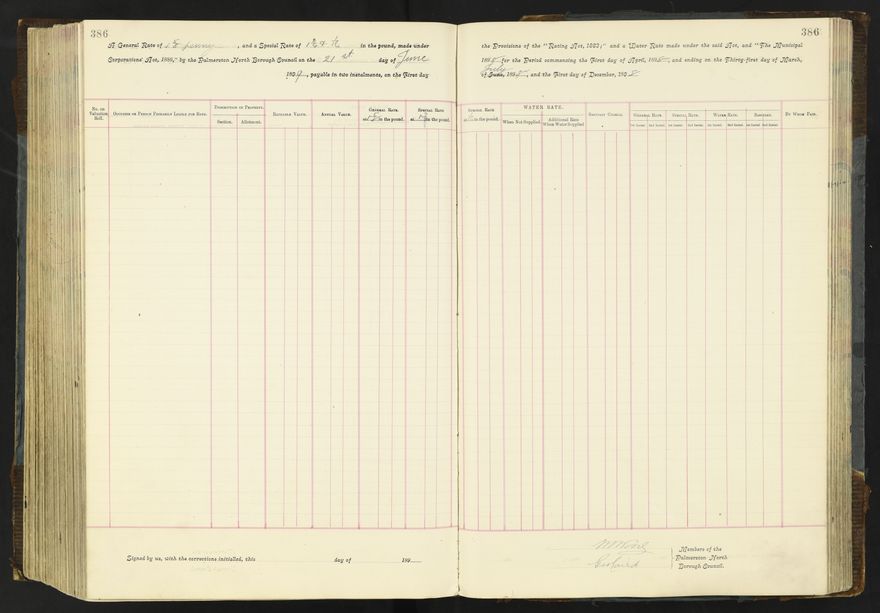 386
A General Rate of 1 & penny, and a Special Rate of in the pound, made under
Corporations' Act, 1886," by the Palmerston North Borough Council on the 21st day of June
189, payable in two instalments, on the First day
No. on Valuation Roll.
Occupier or Person Primarily Liable for Rate.
Description of Property.
Section. Allotment.
Rateable Value.
Annual Value.
General Rate
at in the pound.
Special Rate
at in the pound.
Signed by us, with the corrections initialled, this day of 189
386
the Provisions of the "Rating Act, 1882;" and a Water Rate made under the said Act, and "The Municipal
189 for the Period commencing the First day of April, 1898, and ending on the Thirty-first day of March,
July
of June, 1898, and the First day of December, 1898
Special Rate
at in the pound.
WATER RATE.
When Not Supplied.
Additional Rate When Water Supplied
Sanitary Charge.
General Rate. Special Rate. Water Rate. Sanitary.
By Whom Paid.
Members of the
Palmerston North
Borough Council.